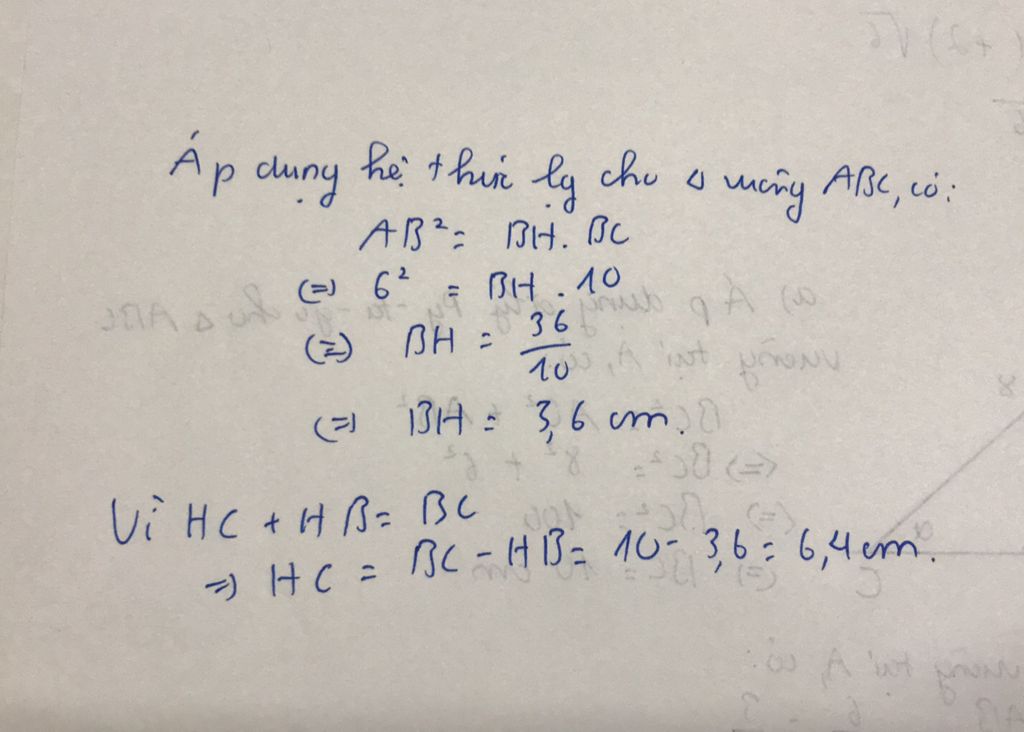 Áp dụng hệ thức lg cho Δ vuông ABC, có:
AB² = BH. BC
(=) 6² = BH . 10
(=) BH = 36/10
(=) BH = 3,6 cm.
Vì HC + HB = BC
=) HC = BC - HB = 10 - 3,6 = 6,4 cm.